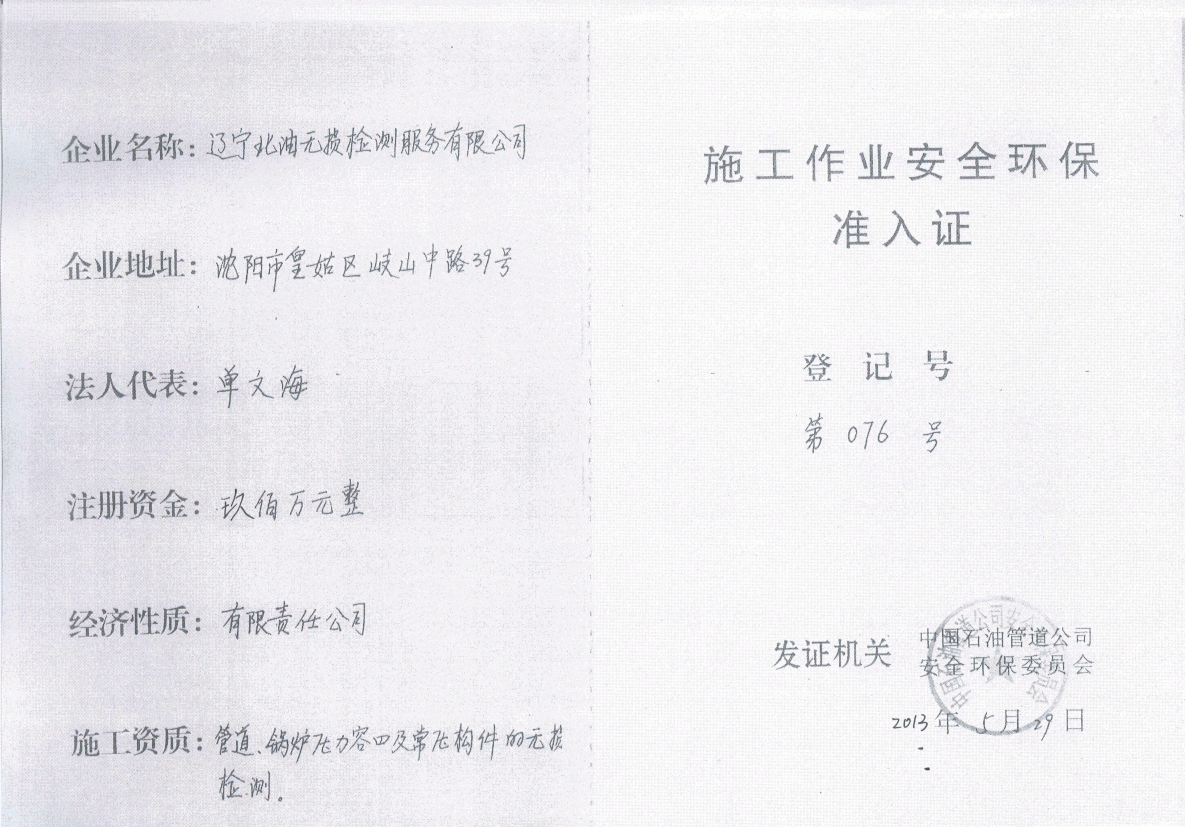 企业名称：辽宁北油无损检测服务有限公司
企业地址：沈阳市皇姑区岐山中路39号
法人代表：单文海
注册资金：玖佰万元整
经济性质：有限责任公司
施工资质：管道、锅炉压力容口及常压构件的无损
检测。
施工作业安全环保
准入证
登记号
第 076 号
发证机关 中国石油管道公司
安全环保委员会
2013年 5月29日